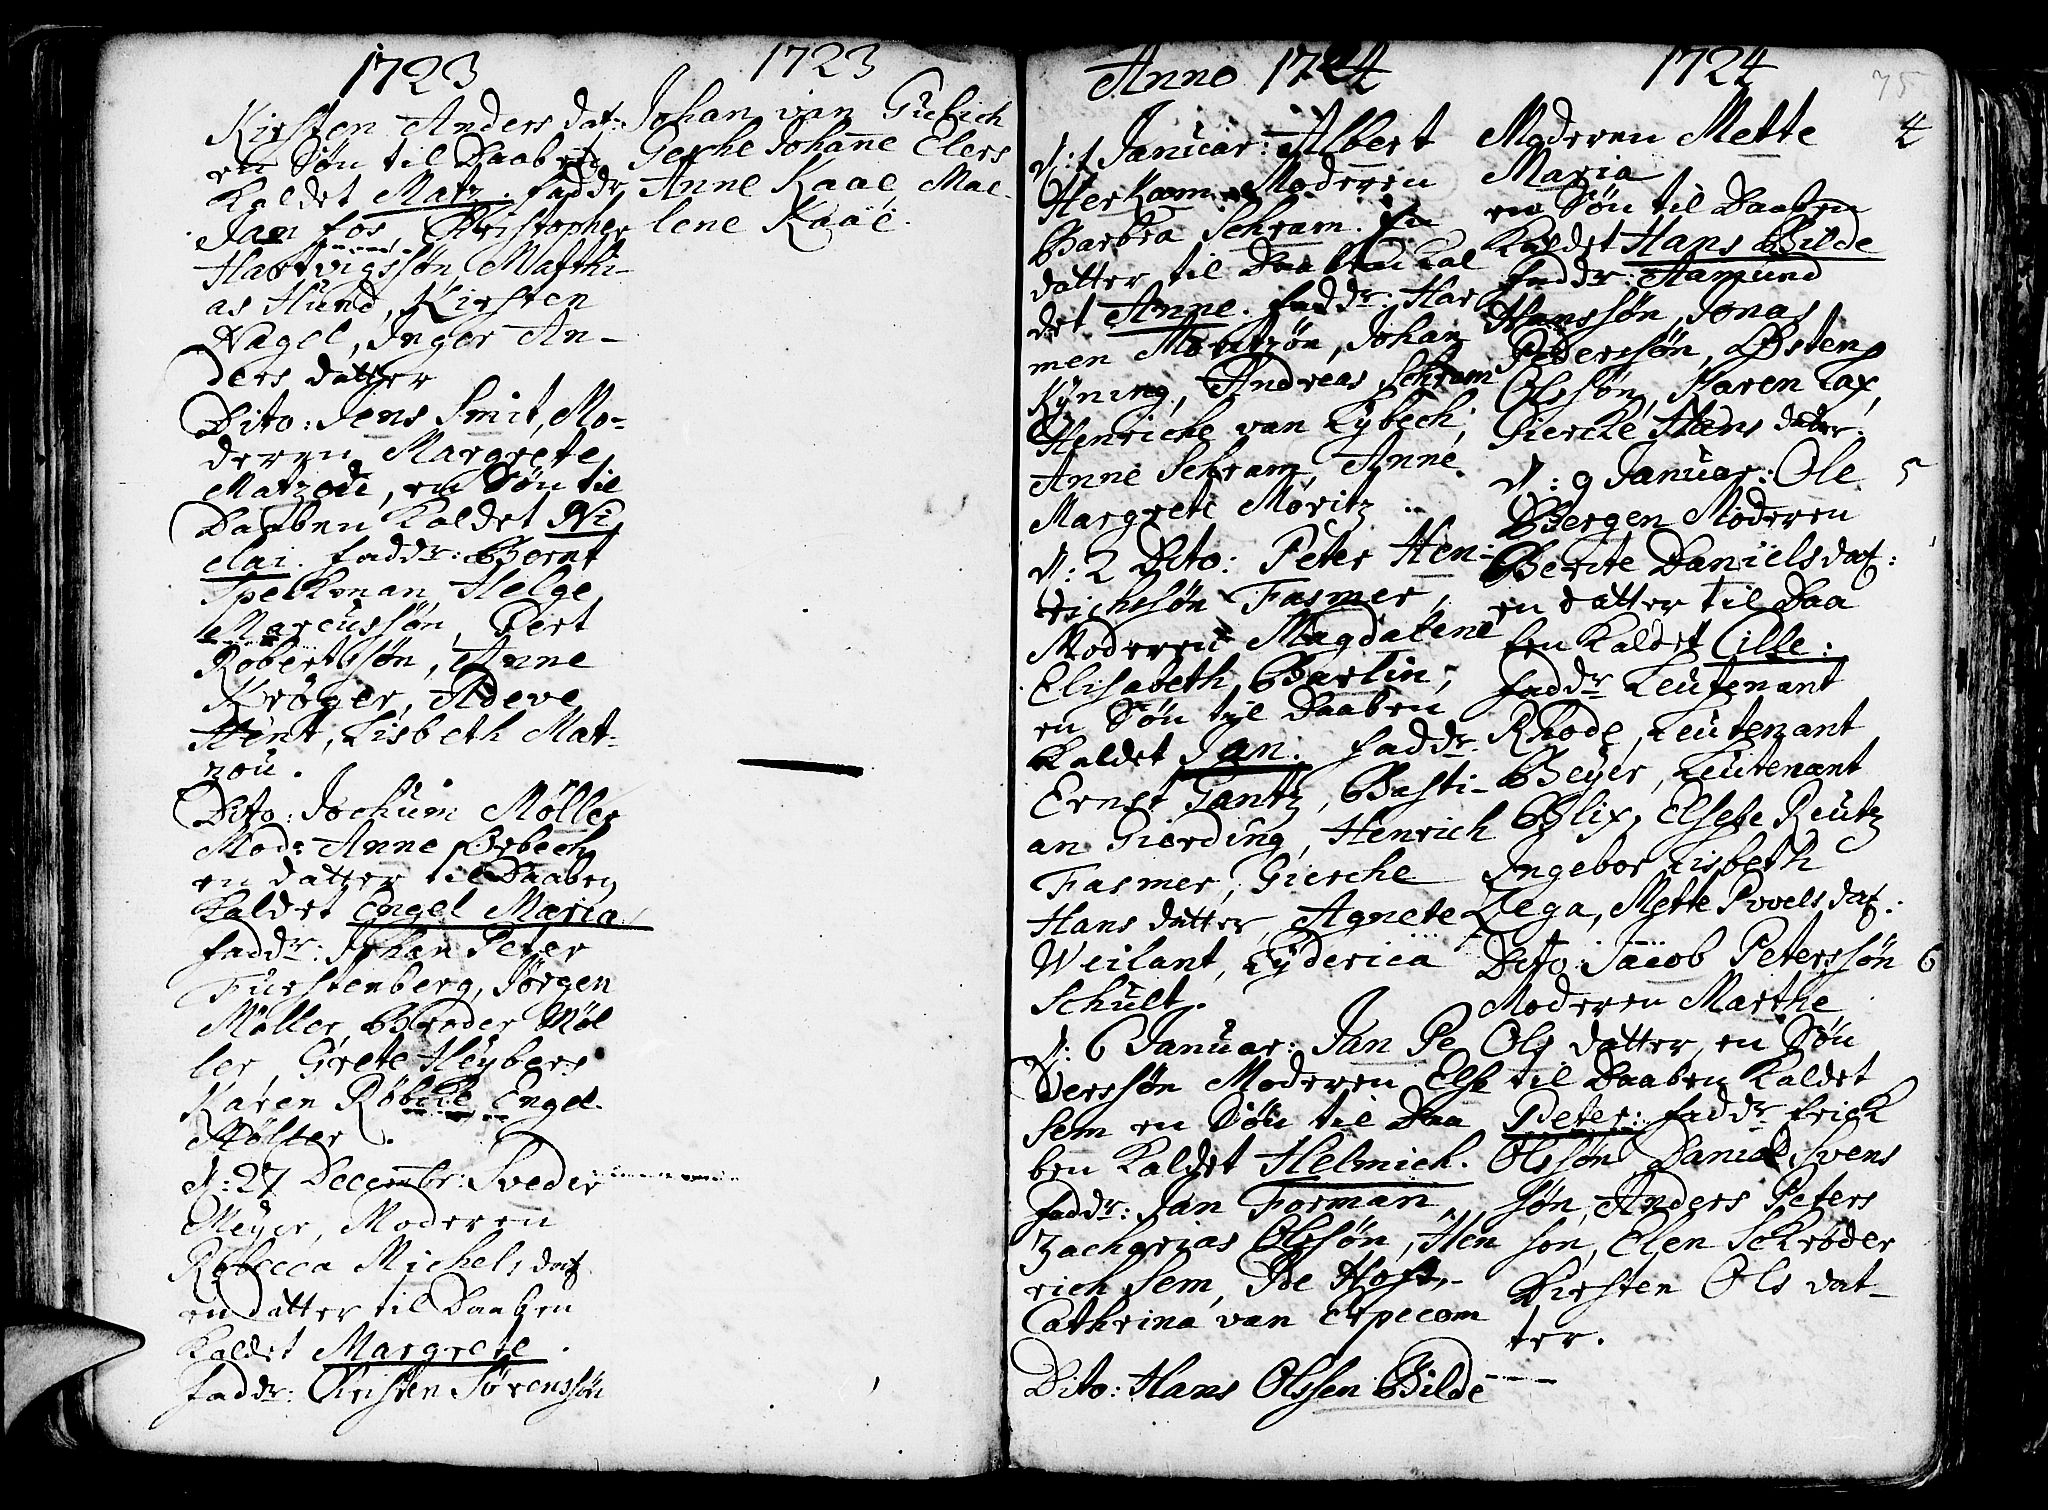 1723
Kirsten Anders dat:
en Søn til Daaben
Kaldet Matz. fadd:r
Jan fos, Christopher
Hartvigssøn, Matthi-
as Hund, Kirsten
Nagel, Inger An-
ders datter
Dito: Jens Smit, Mo-
deren Margrete
Matzou, en Søn til
Daaben Kaldet Ni
clai. fadd:r: Bernt
Speckman, Helge
Marcussøn, Pert
Robertssøn, Anne
Krøger, Adeve
Hint, Lisbeth Mat-
zou.
Dito: Jochum Møller
Mod: Anne Ørbech
en datter til Daaben
Kaldet Engel Maria
fadd:r: Johan Peter
Furstenberg, Jørgen
Møller, Broder Møl
ler, Grete Heyberg
Karen Røbcke Engel
Mølter.
d: 27 Decembr: Sveder
Meyer, Moderen
Rebecca Michels dat
en datter til Daaben
Kaldet Margrete.
fadd:r: Christen Sørenssøn
1723
Johan van Gulich
Gerche Johanne Elers
Anne Kaae, Mal-
lene Kaae.
Anno 1724
d: 1 Januar: Albert
Herkam Moderen
Barbra Schram. En
datter til Daaben Kal
det Anne. fadd:r: Har
men Moritzøn, Johan
Kyning, Andreas Schram
Henriche van Lybech,
Anne Schram, Anne
Margrete Møritz
d: 2 Dito: Peter Hen-
richssøn Fasmer,
Moderen Magdalene
Elisabeth Bartin,
en Søn til Daaben
Kaldet Jan. fadd:r
Ernst Gantz, Basti-
an Gierding, Henrich
Fasmer, Gierche
Hans datter, Agnete
Weilant, Lyderica
Schult.
d: 6 Januar: Jan Pe
derssøn Moderen Else
Sem en Søn til Daa
ben Kaldet Helmich.
fadd:r: Jan Forman
Zacharias Olssøn, Hen
rich Sem, Ide Hoft,
Cathrina van Erpecom
Dito: Hans Olssen Bilde
1724
75
Moderen Mette 4
Maria
en Søn til Daaben
Kaldet Hans Bilde
fadd:r: Hamund
Hanssøn, Jonas
Pederssøn, Østen
Olssøn, Karen Lax,
Giercke Hans datter.
d: 9 Januar: Ole 5
Bergen Moderen
Berite Daniels dat:
en datter til Daa
ben Kaldet Cille:
fadd:r Leutenant
Rhode, Leutenant
Beyer, Leutenant
Blix, Elsebe Reutz
Ingebor Lisbeth
Lega, Mette Povels dat:
Dito: Jacob Peterssøn 6
Moderen Marthe
Ols datter, en Søn
til Daaben Kaldet
Peter: fadd:r Erick
Olssøn Daniel Svens
søn, Anders Peters
søn, Elen Schrøder
Kirsten Ols dat-
ter.